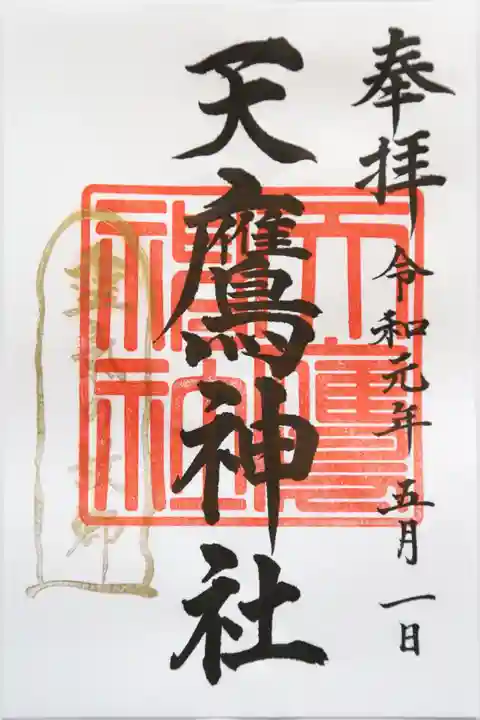 奉拝 令和元年 五月 一日
天鷹神社
天鷹神社